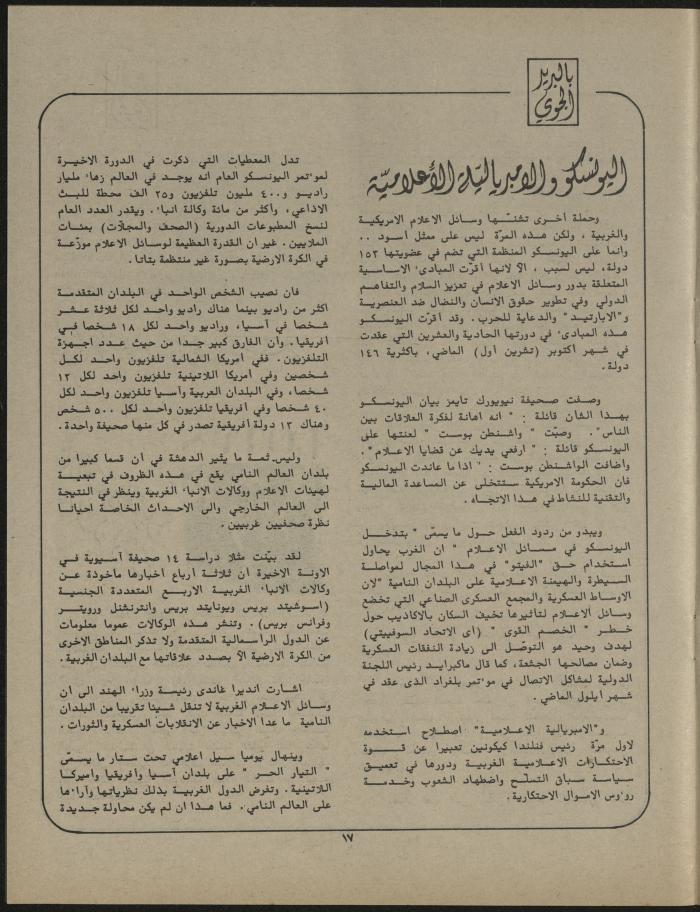 بالبريد
الجوي
اليونسكو والامبرياليّة الأعلاميّة
وحملة أخرى تشنّها وسائل الاعلام الامريكية
والغربية ، ولكن هذه المرّة ليس على ممثل أسود ..
وانما على اليونسكو المنظمة التي تضم في عضويتها ١٥٣
دولة، ليس لسبب ، الآ لانها أقرّت المبادىء الاساسية
المتعلقة بدور وسائل الاعلام في تعزيز السلام والتفاهم
الدولي وفي تطوير حقوق الانسان والنضال ضد العنصرية
و"الابارتيد" والدعاية للحرب . وقد أقرّت اليونسكو
هذه المبادىء في دورتها الحادية والعشرين التي عقدت
في شهر أكتوبر (تشرين أول) الماضي، باكثرية ١٤٦
دولة.
وصفت صحيفة نيويورك تايمز بيان اليونسكو
بهذا الشأن قائلة : " انه اهانة لفكرة العلاقات بين
الناس". وصبّت " واشنطن بوست " لعنتها على
اليونسكو قائلة : " ارفعي يديك عن قضايا الاعلام ".
وأضافت الواشنطن بوست : " اذا ما عاندت اليونسكو
فان الحكومة الامريكية ستتخلى عن المساعدة المالية
والتقنية للنشاط في هذا الاتجاه .
ويبدو من ردود الفعل حول ما يسمّى " بتدخل
اليونسكو في مسائل الاعلام " ان الغرب يحاول
استخدام حق "الفيتو" في هذا المجال لمواصلة
السيطرة والهيمنة الاعلامية على البلدان النامية "لان
الاوساط العسكرية والمجمع العسكري الصناعي التي تخضع
وسائل الاعلام لتأثيرها تخيف السكان بالاكاذيب حول
خطر " الخصم القوى " (اى الاتحاد السوفييتي)
لهدف وحيد هو التوصّل الى زيادة النفقات العسكرية
وضمان مصالحها الجشعة، كما قال ماكبرايد رئيس اللجنة
الدولية لمشاكل الاتصال في موءتمر بلغراد الذى عقد في
شهر ايلول الماضي .
و"الامبريالية الاعلامية" اصطلاح استخدمه
لاول مرّة رئيس فنلندا كيكونين تعبيرا عن قوة
الاحتكارات الاعلامية الغربية ودورها في تعميق
سياسة سباق التسلّح واضطهاد الشعوب وخدمة
روءوس الاموال الاحتكارية.
تدل المعطيات التي ذكرت في الدورة الاخيرة
لموءتمر اليونسكو العام انه يوجد في العالم زهاء مليار
راديو و٤٠٠ مليون تلفزيون و٢٥ الف محطة للبث
الاذاعي، وأكثر من مائة وكالة انباء. ويقدر العدد العام
لنسخ المطبوعات الدورية (الصحف والمجلاّت) بمئات
الملايين . غير أن القدرة العظيمة لوسائل الاعلام موزّعة
في الكرة الارضية بصورة غير منتظمة بتاتا.
فان نصيب الشخص الواحد في البلدان المتقدمة
اكثر من راديو بينما هناك راديو واحد لكل ثلاثة عشر
شخصا في آسيا، وراديو واحد لكل ١٨ شخصا في
أفريقيا. وأن الفارق كبير جدا من حيث عدد اجهزة
التلفزيون. ففي أمريكا الشمالية تلفزيون واحد لكل
شخصين وفي أمريكا اللاتينية تلفزيون واحد لكل ١٢
شخصا، وفي البلدان العربية وآسيا تلفزيون واحد لكل
٤٠ شخصا وفي أفريقيا تلفزيون واحد لكل ٥٠٠ شخص
وهناك ١٣ دولة أفريقية تصدر في كل منها صحيفة واحدة.
وليس ثمة ما يثير الدهشة في أن قسما كبيرا من
بلدان العالم النامي يقع في هذه الظروف في تبعية
لهيئات الاعلام ووكالات الانباء الغربية وينظر في النتيجة
الى العالم الخارجي والى الاحداث الخاصة احيانا
نظرة صحفيين غربيين .
لقد بيّنت مثلا دراسة ١٤ صحيفة آسيوية في
الاونة الاخيرة أن ثلاثة أرباع أخبارها مأخوذة عن
وكالات الانباء الغربية الاربع المتعددة الجنسية
(اسوشيتد بريس ويونايتد بريس وانترنشنل ورويتر
وفرانس بريس) . وتنشر هذه الوكالات عموما معلومات
عن الدول الرأسمالية المتقدمة ولا تذكر المناطق الاخرى
من الكرة الارضية الآ بصدد علاقاتها مع البلدان الغربية.
اشارت انديرا غاندى رئيسة وزراء الهند الى ان
وسائل الاعلام الغربية لا تنقل شيئا تقريبا من البلدان
النامية ما عدا الاخبار عن الانقلابات العسكرية والثورات .
وينهال يوميا سيل اعلامي تحت ستار ما يسمّى
" التيار الحر " على بلدان آسيا وأفريقيا واميركا
اللاتينية . وتفرض الدول الغربية بذلك نظرياتها وآراءها
على العالم النامي . فما هذا ان لم يكن محاولة جديدة
١٧